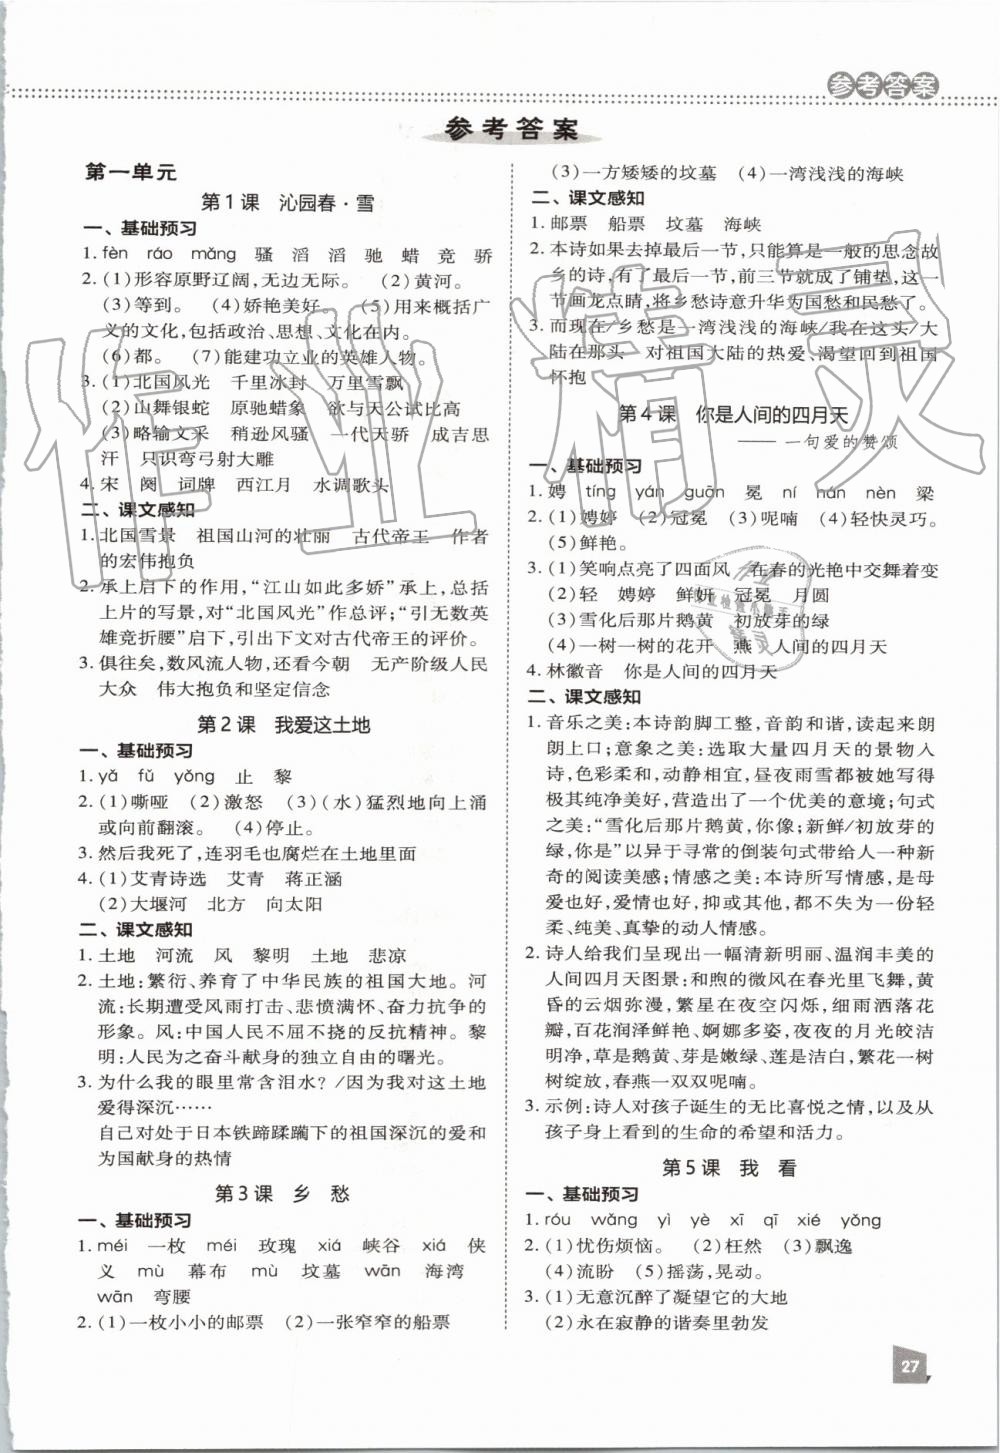 参考答案
参考答案
第一单元
第1课 沁园春·雪
一、基础预习
1. fèn ráo mǎng 骚 滔 滔 驰 蜡 竞 骄
2. (1)形容原野辽阔,无边无际。 (2)黄河。
(3)等到。 (4)娇艳美好。 (5)用来概括广
义的文化,包括政治、思想、文化在内。
(6)都。 (7)能建功立业的英雄人物。
3. (1)北国风光 千里冰封 万里雪飘
(2)山舞银蛇 原驰蜡象 欲与天公试比高
(3)略输文采 稍逊风骚 一代天骄 成吉思
汗 只识弯弓射大雕
4. 宋 阕 词牌 西江月 水调歌头
二、课文感知
1. 北国雪景 祖国山河的壮丽 古代帝王 作者
的宏伟抱负
2. 承上启下的作用,“江山如此多娇”承上,总括
上片的写景,对“北国风光”作总评;“引无数英
雄竞折腰”启下,引出下文对古代帝王的评价。
3. 俱往矣,数风流人物,还看今朝 无产阶级人民
大众 伟大抱负和坚定信念
第2课 我爱这土地
一、基础预习
1. yǎ fǔ yǒng 止 黎
2. (1)嘶哑 (2)激怒 (3)(水)猛烈地向上涌
或向前翻滚。 (4)停止。
3. 然后我死了,连羽毛也腐烂在土地里面
4. (1)艾青诗选 艾青 蒋正涵
(2)大堰河 北方 向太阳
二、课文感知
1. 土地 河流 风 黎明 土地 悲凉
2. 土地:繁衍、养育了中华民族的祖国大地。河
流:长期遭受风雨打击、悲愤满怀、奋力抗争的
形象。风:中国人民不屈不挠的反抗精神。黎
明:人民为之奋斗献身的独立自由的曙光。
3. 为什么我的眼里常含泪水? /因为我对这土地
爱得深沉……
自己对处于日本铁蹄蹂躏下的祖国深沉的爱和
为国献身的热情
第3课 乡 愁
一、基础预习
1. méi 一枚 méi 玫瑰 xiá 峡谷 xiá 侠
义 mù 幕布 mù 坟墓 wān 海湾
wān 弯腰
2. (1)一枚小小的邮票 (2)一张窄窄的船票
(3)一方矮矮的坟墓 (4)一湾浅浅的海峡
二、课文感知
1. 邮票 船票 坟墓 海峡
2. 本诗如果去掉最后一节,只能算是一般的思念故
乡的诗,有了最后一节,前三节就成了铺垫,这一
节画龙点睛,将乡愁诗意升华为国愁和民愁了。
3. 而现在/乡愁是一湾浅浅的海峡/我在这头/大
陆在那头 对祖国大陆的热爱、渴望回到祖国
怀抱
第4课 你是人间的四月天
—— 一句爱的赞颂
一、基础预习
1. 娉 tíng yán guān 冕 ní nán nèn 梁
2. (1)娉婷 (2)冠冕 (3)呢喃 (4)轻快灵巧。
(5)鲜艳。
3. (1)笑响点亮了四面风 在春的光艳中交舞着变
(2)轻 娉婷 鲜妍 冠冕 月圆
(3)雪化后那片鹅黄 初放芽的绿
(4)一树一树的花开 燕 人间的四月天
4. 林徽音 你是人间的四月天
二、课文感知
1. 音乐之美:本诗韵脚工整,音韵和谐,读起来朗
朗上口;意象之美:选取大量四月天的景物入
诗,色彩柔和,动静相宜,昼夜雨雪都被她写得
极其纯净美好,营造出了一个优美的意境;句式
之美:“雪化后那片鹅黄,你像;新鲜/初放芽的
绿,你是”以异于寻常的倒装句式带给人一种新
奇的阅读美感;情感之美:本诗所写情感,是母
爱也好,爱情也好,抑或其他,都不失为一份轻
柔、纯美、真挚的动人情感。
2. 诗人给我们呈现出一幅清新明丽、温润丰美的
人间四月天图景:和煦的微风在春光里飞舞,黄
昏的云烟弥漫,繁星在夜空闪烁,细雨洒落花
瓣,百花润泽鲜艳、婀娜多姿,夜夜的月光皎洁
明净,草是鹅黄、芽是嫩绿、莲是洁白,繁花一树
树绽放,春燕一双双呢喃。
3. 示例:诗人对孩子诞生的无比喜悦之情,以及从
孩子身上看到的生命的希望和活力。
第5课 我 看
一、基础预习
1. róu wǎng yì yè xī qī xié yǒng
2. (1)忧伤烦恼。 (2)枉然 (3)飘逸
(4)流盼 (5)摇荡,晃动。
3. (1)无意沉醉了凝望它的大地
(2)永在寂静的谐奏里勃发
27
作业精灵